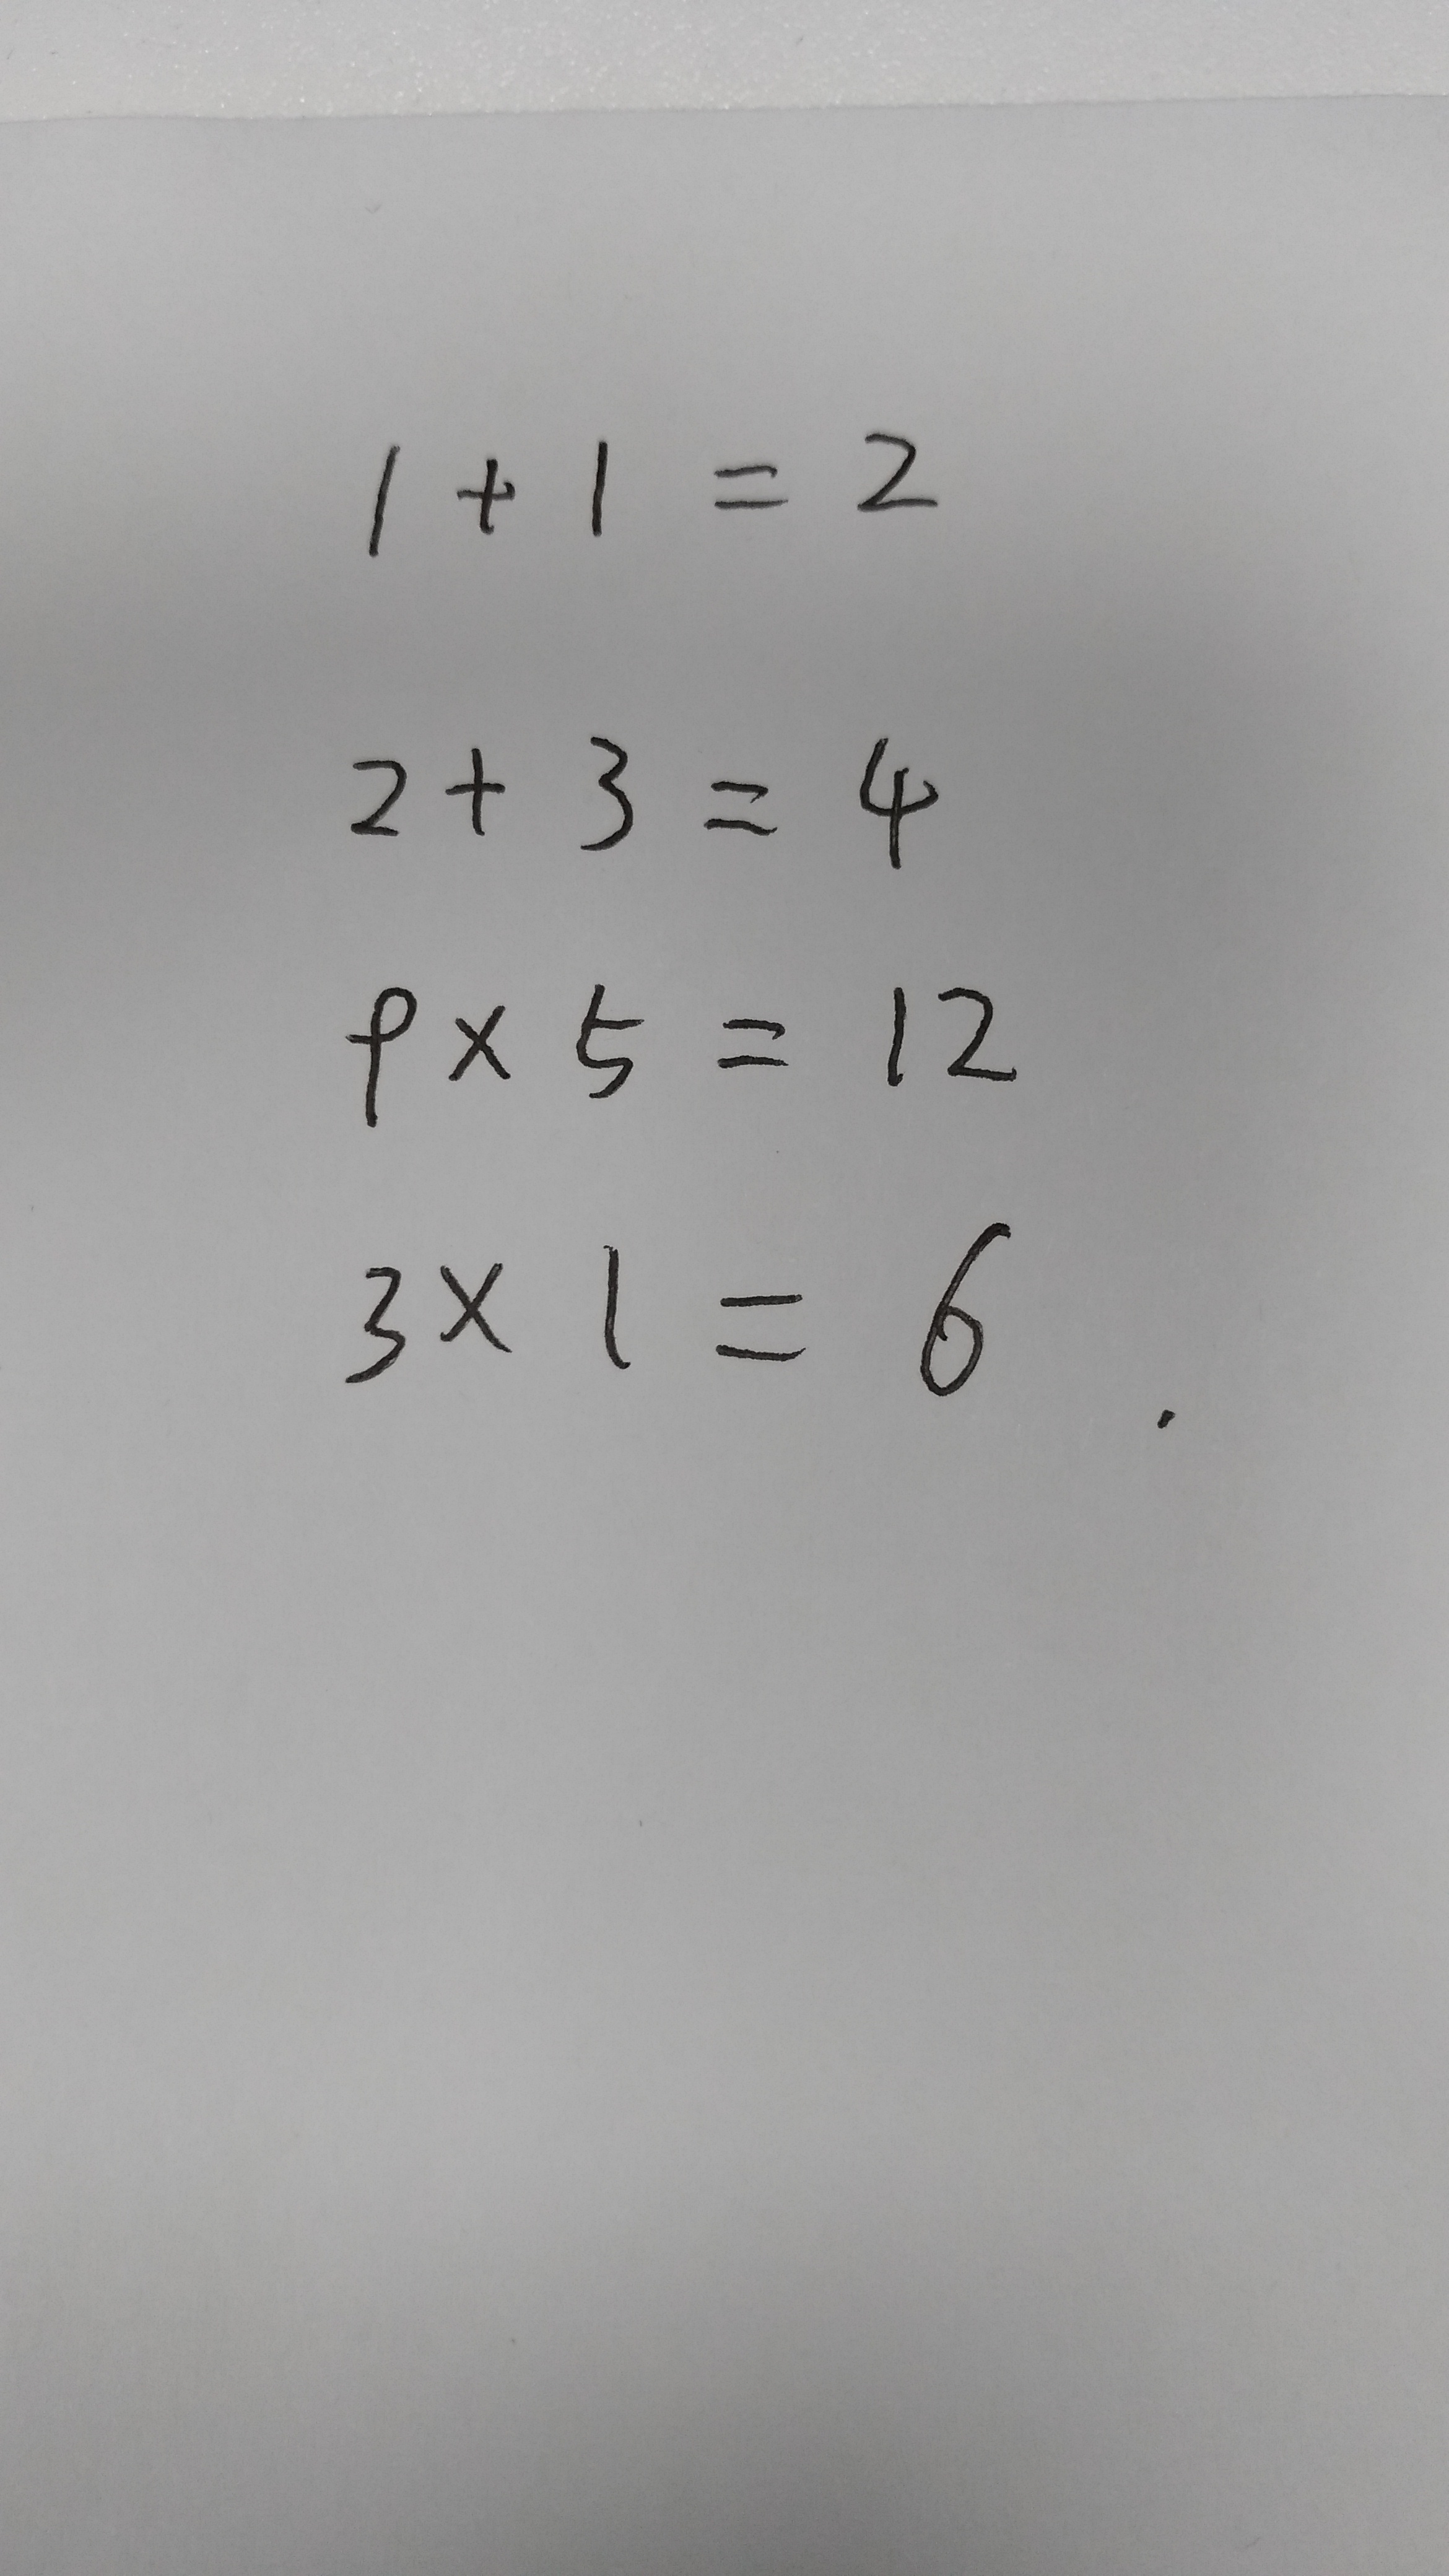 1 + 1 = 2
2 + 3 = 4
9 × 5 = 12
3 × 1 = 6.